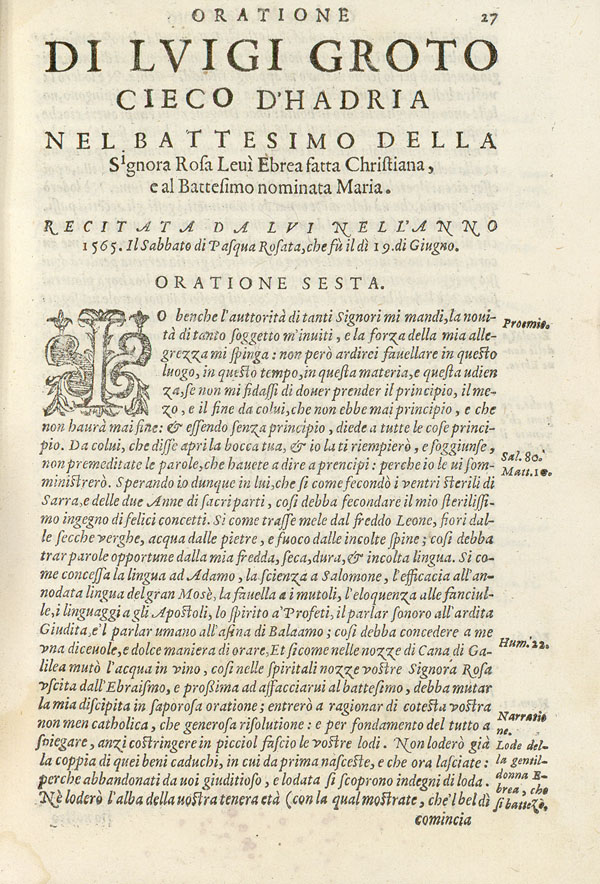 ORATIONE 27
DI LVIGI GROTO
CIECO D'HADRIA
NEL BATTESIMO DELLA
Signora Rosa Leuì Ebrea fatta Christiana,
e al Battesimo nominata Maria.
RECITATA DA LVI NELL'ANNO
1565. Il Sabbato di Pasqua Rosata, che fù il dì 19. di Giugno.
ORATIONE SESTA.
IO benche l'auttorità di tanti Signori mi mandi, la noui-
tà di tanto soggetto m'inuiti, e la forza della mia alle- Proemio.
grezza mi spinga: non però ardirei fauellare in questo
luogo, in questo tempo, in questa materia, e questa udien
za, se non mi fidassi di douer prender il principio, il me-
zo, e il fine da colui, che non ebbe mai principio, e che
non haurà mai fine: & essendo senza principio, diede a tutte le cose princi-
pio. Da colui, che disse apri la bocca tua, & io la ti riempierò, e soggiunse, Sal. 80.
non premeditate le parole, che hauete a dire a prencipi: perche io le ui som- Matt. 10.
ministrerò. Sperando io dunque in lui, che si come fecondò i ventri sterili di
Sarra, e delle due Anne di sacri parti, così debba fecondare il mio sterilissi-
mo ingegno di felici concetti. Si come trasse mele dal freddo Leone, fiori dal-
le secche verghe, acqua dalle pietre, e fuoco dalle incolte spine; così debba
trar parole opportune dalla mia fredda, seca, dura, & incolta lingua. Si co-
me concessa la lingua ad Adamo, la scienza a Salomone, l'efficacia all'an-
nodata lingua del gran Mosè, la fauella a i mutoli, l'eloquenza alle fanciul-
le, i linguaggi a gli Apostoli, lo spirito a' Profeti, il parlar sonoro all'ardita
Giudita, e'l parlar umano all'asina di Balaamo; così debba concedere a me
vna diceuole, e dolce maniera di orare, Et si come nelle nozze di Cana di Ga- Hum. 22.
lilea mutò l'acqua in vino, così nelle spiritali nozze vostre Signora Rosa
vscita dall'Ebraismo, e prossima ad affacciarui al battesimo, debba mutar
la mia discipita in saporosa oratione; entrerò a ragionar di cotesta vostra
non men catholica, che generosa risolutione: e per fondamento del tutto a Narratione.
spiegare, anzi costringere in picciol fascio le vostre lodi. Non loderò già Lode del-
la coppia di quei beni caduchi, in cui da prima nasceste, e che ora lasciate: la gentil-
perche abbandonati da uoi giuditioso, e lodata si scoprono indegni di loda. donna E-
Nè loderò l'alba della uostra tenera età (con la qual mostrate, che'l bel dì brea, che si battezò.
comincia